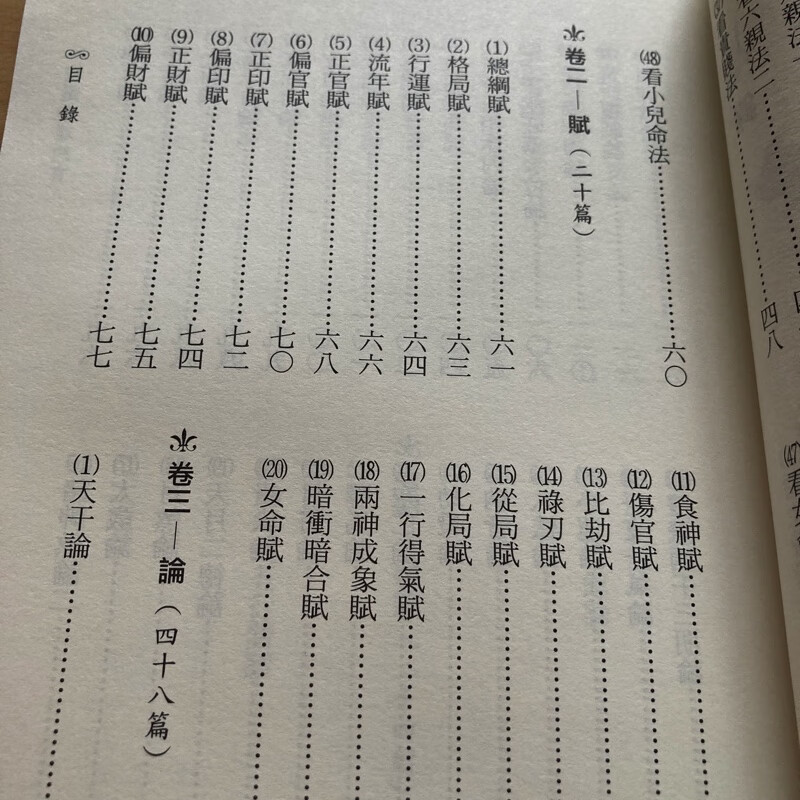 六親法二……四八
(47)看女
(48)看小兒命法……六〇
卷二—賦（二十篇）
(1)總綱賦……六一
(2)格局賦……六三
(3)行運賦……六四
(4)流年賦……六六
(5)正官賦……六八
(6)偏官賦……七〇
(7)正印賦……七二
(8)偏印賦……七四
(9)正財賦……七五
(10)偏財賦……七七
目錄
(11)食神賦……
(12)傷官賦……
(13)比劫賦……
(14)祿刃賦……
(15)從局賦……
(16)化局賦……
(17)一行得氣賦……
(18)兩神成象賦……
(19)暗衝暗合賦……
(20)女命賦……
卷三—論（四十八篇）
(1)天干論……